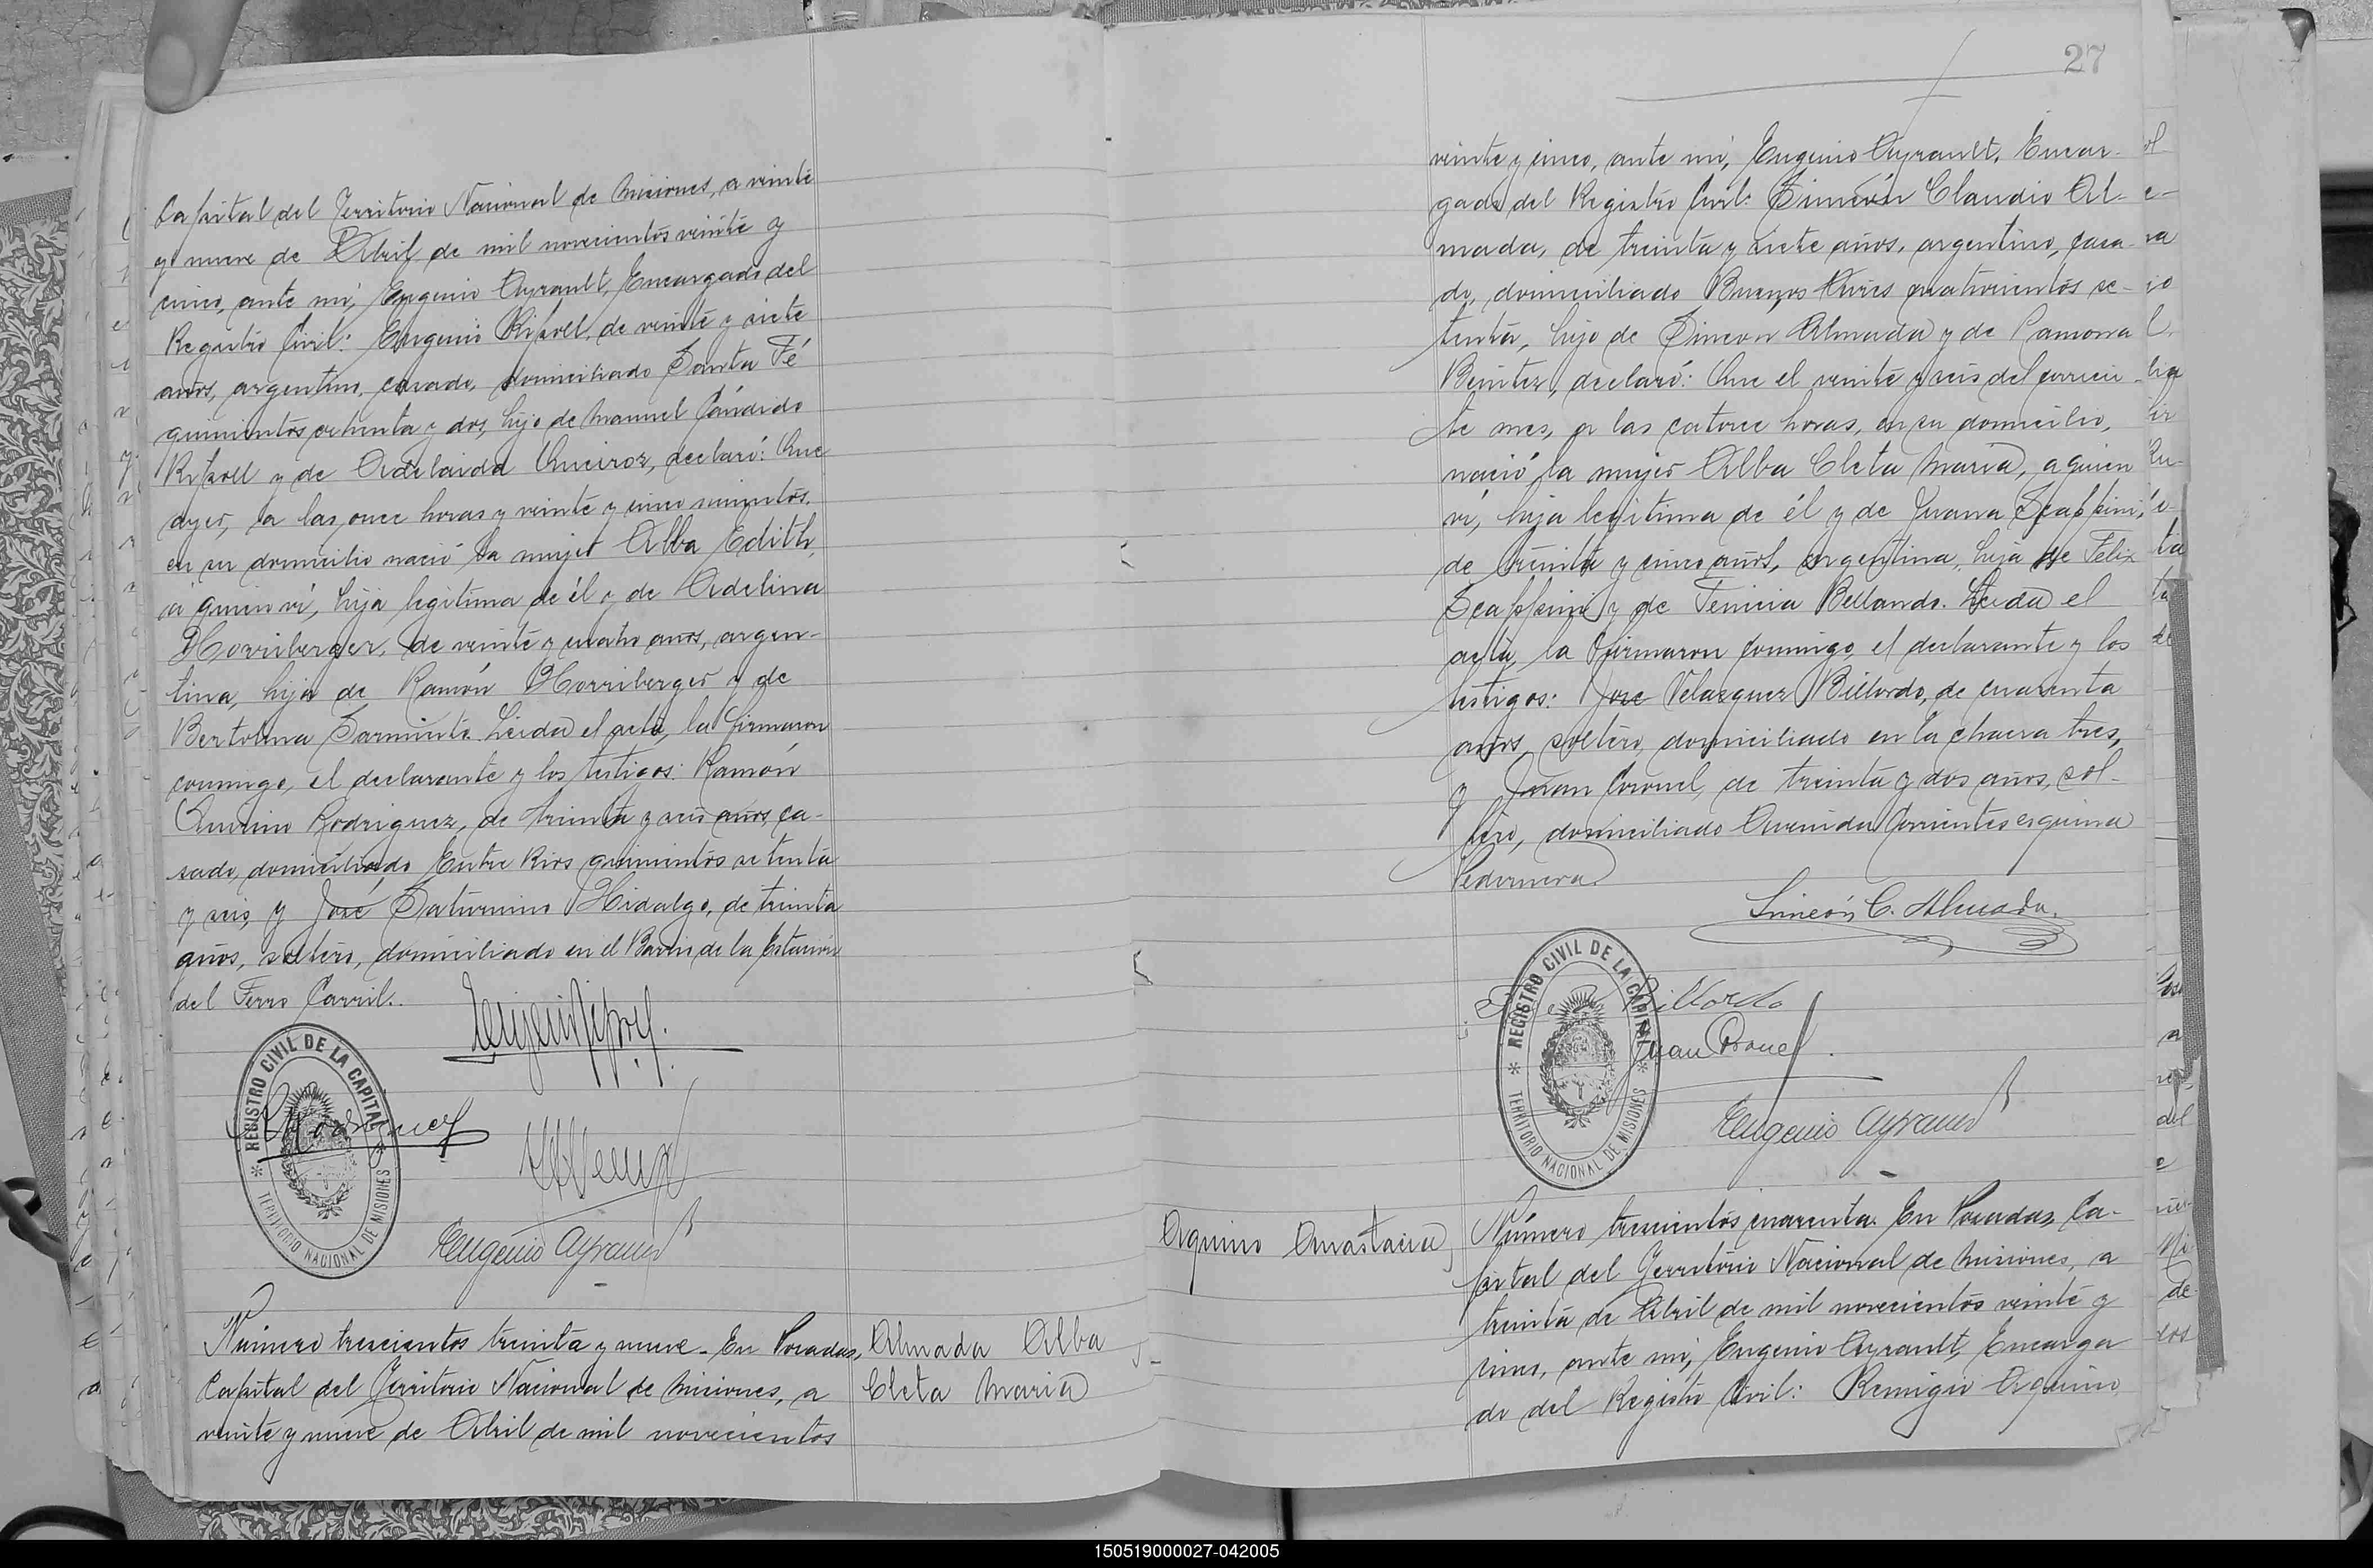 Capital del Territorio Nacional de Misiones, a veinte
y nueve de Abril de mil novecientos veinte y
cinco, ante mi, Eugenio Ayrault, Encargado del
Registro Civil: Eugenio Ripoll, de veinte y siete
años, argentino, casado, domiciliado Santa Fé
quinientos ochenta y dos, hijo de Manuel Cándido
Ripoll y de Adelaida Queiroz, declaró: Que
ayer, a las once horas y veinte y cinco minutos,
en su domicilio nació la mujer Alba Edith,
a quien vi, hija legitima de él y de Adelina
Horriberger, de veinte y cuatro años, argen-
tina, hija de Ramón Horriberger y de
Bertolina Sarmiento. Leida el acta, la firmaron
conmigo, el declarante y los testigos: Ramón
Quirino Rodriguez, de treinta y seis años, ca-
sado, domiciliado Entre Rios quinientos setenta
y seis, y José Saturnino Hidalgo, de treinta
años, soltero, domiciliado en el Barrio de la Estación
del Ferro Carril.
REGISTRO CIVIL DE LA CAPITAL
TERRITORIO NACIONAL DE MISIONES
Eugenio Ayrault
Número trescientos treinta y nueve. En Posadas,
Almada Alba
Cleta Maria
Capital del Territorio Nacional de Misiones, a
veinte y nueve de Abril de mil novecientos
27
veinte y cinco, ante mi, Eugenio Ayrault, Encar-
gado del Registro Civil: Simeón Claudio Al-
mada, de treinta y siete años, argentino, casa-
do, domiciliado Buenos Aires cuatrocientos se-
tenta, hijo de Simeon Almada y de Ramona
Benitez, declaró: Que el veinte y seis del corrien-
te mes, a las catorce horas, en su domicilio,
nació la mujer Alba Cleta Maria, a quien
vi, hija legitima de él y de Juana Scappini,
de treinta y cinco años, argentina, hija de Felix
Scappini y de Fenicia Bellando. Leida el
acta, la firmaron conmigo, el declarante y los
testigos: José Velazquez Billordo, de cuarenta
años, soltero, domiciliado en la chacra tres,
y Juan Coronel, de treinta y dos años, sol-
tero, domiciliado Avenida Corrientes esquina
Pedernera.
Simeón C. Almada.
Billordo
Juan Coronel
REGISTRO CIVIL DE LA CAPITAL
TERRITORIO NACIONAL DE MISIONES
Eugenio Ayrault
Aquino Anastacia
Número trescientos cuarenta. En Posadas, Ca-
pital del Territorio Nacional de Misiones, a
treinta de Abril de mil novecientos veinte y
cinco, ante mi, Eugenio Ayrault, Encarga
do del Registro Civil: Remigio Aquino
150519000027-042005